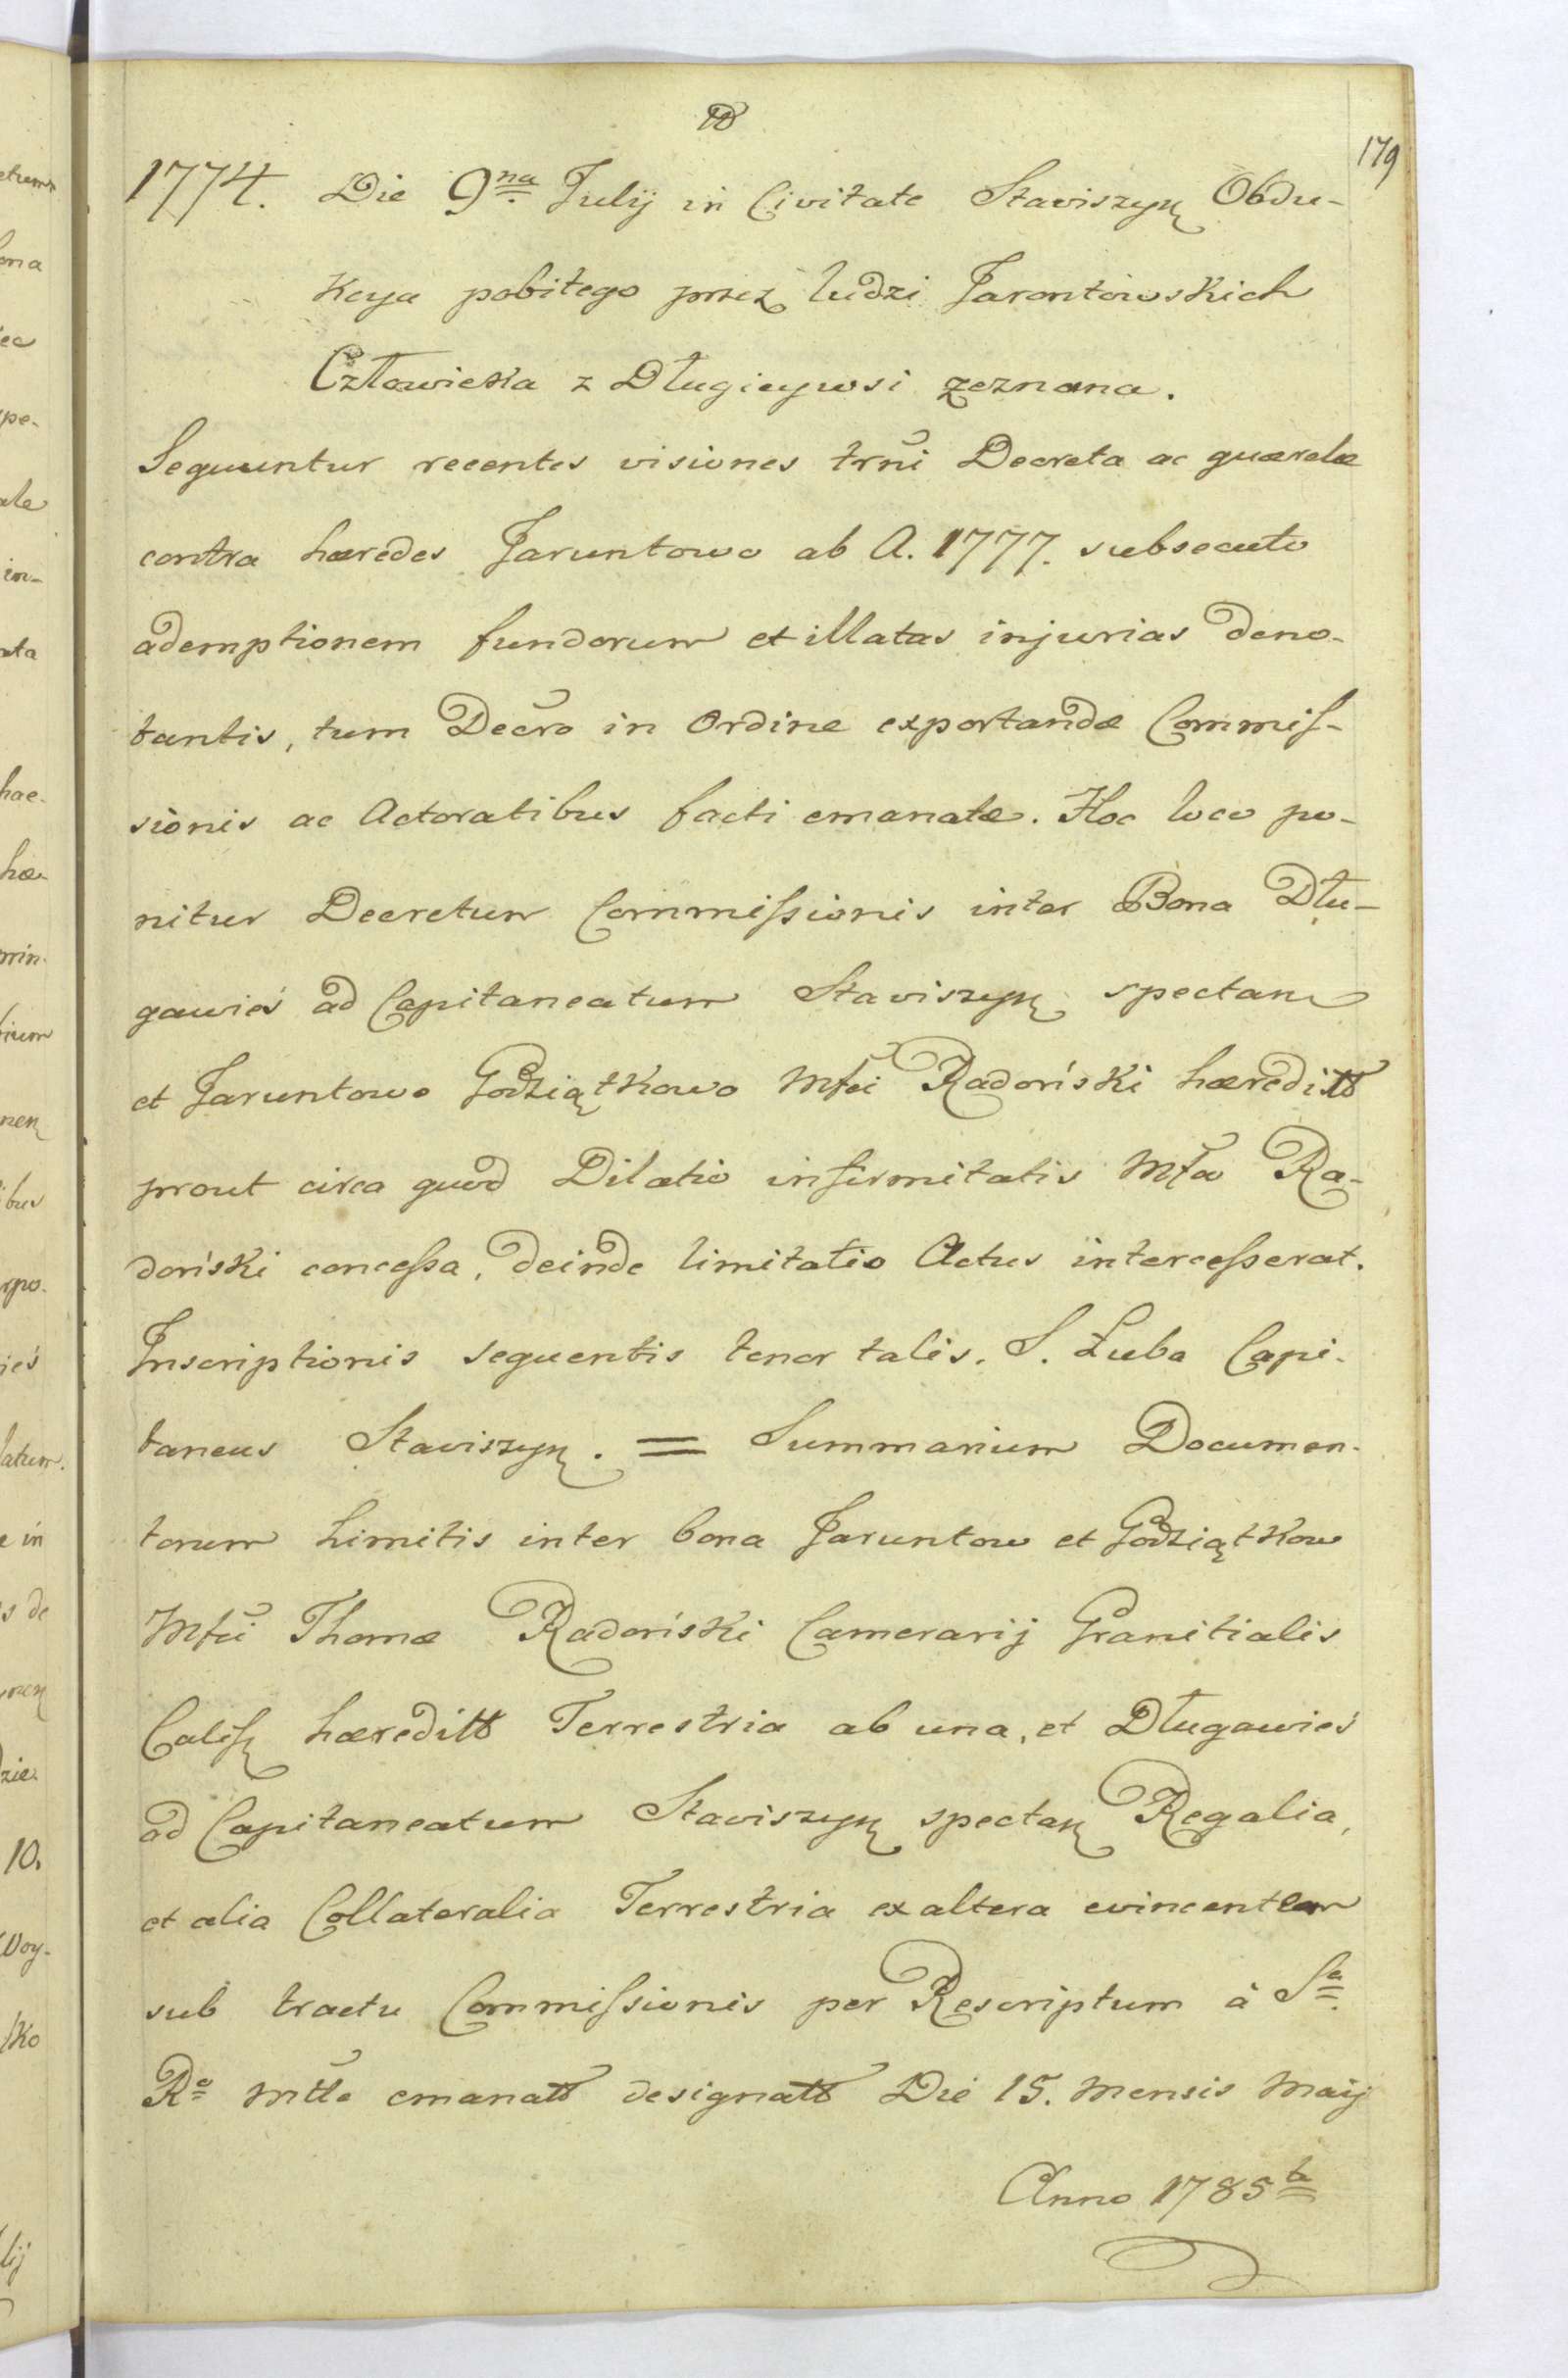 179
1774. Die 9na July in Civitate Staviszyn Obdu-
kcya pobitego przez ludzi Jarontowskich
Człowieka z Długieywsi zeznana.
Sequuntur recentes visiones trni Decreta ac quærelæ
contra hæredes Jaruntowo ab A. 1777. subsecuto
ademptionem fundorum et illatas injurias deno-
tantis, tum Decro in Ordine exportandæ Commiſ-
sionis ac Actoratibus facti emanatæ. Hoc loco po-
nitur Decretum Commiſsionis inter Bona Dłu-
gawieś ad Capitaneatum Staviszyn spectan
et Jaruntowo Godziątkowo Mfci Radoński hæredit
prout circa quod Dilatio infirmitatis Mfo Ra-
doński conceſsa, deinde limitatio Actus interceſserat.
Inscriptionis sequentis tenor talis. S. Łuba Capi-
taneus Staviszyn. = Summarium Documen-
torum Limitis inter bona Jaruntow et Godziątkow
Mfci Thomæ Radoński Camerarij Granitialis
Caliſ hæredit Terrestria ab una, et Długawieś
ad Capitaneatum Staviszyn spectan Regalia,
et alia Collateralia Terrestria ex altera evincentem
sub tractu Commiſsionis per Rescriptum à Sa
Ra mtte emanatt designatt Die 15. Mensis Maij
Anno 1785ta